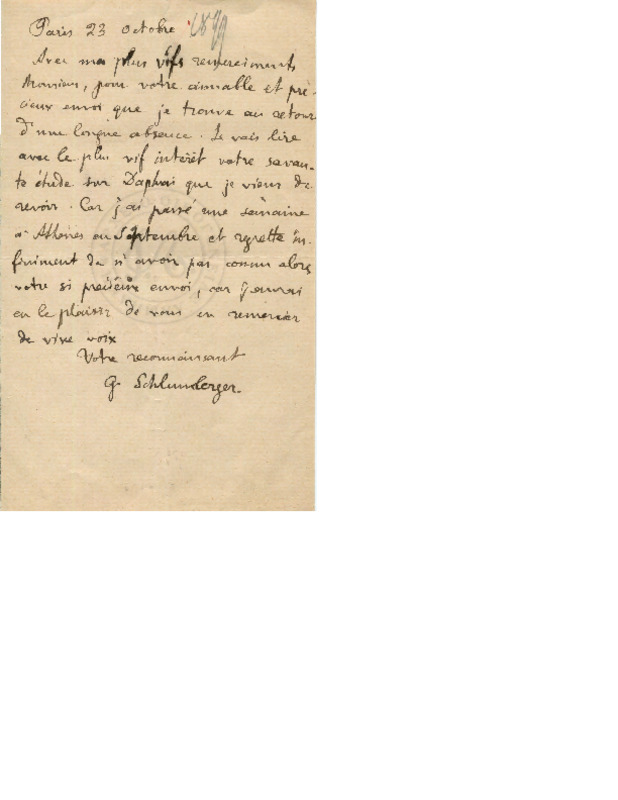 Paris 23 octobre 1899
Avec mes plus vifs remerciments
Monsieur, pour votre aimable et pré-
cieux envoi que je trouve au retour
d'une longue absence. Je vais lire
avec le plus vif intérêt votre savan-
te étude sur Daphni que je viens de
revoir. Car j'ai passé une semaine
à Athènes en Septembre et regrette in-
finiment de n'avoir pas connu alors
votre si précieux envoi, car j'aurai
eu le plaisir de vous en remercier
de vive voix
Votre reconnaissant
G. Schlumberger.